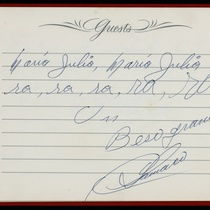 Guests
Mario Julio, Mario Julio
ra, ra, ra, ra, ra
Un
Beso grande